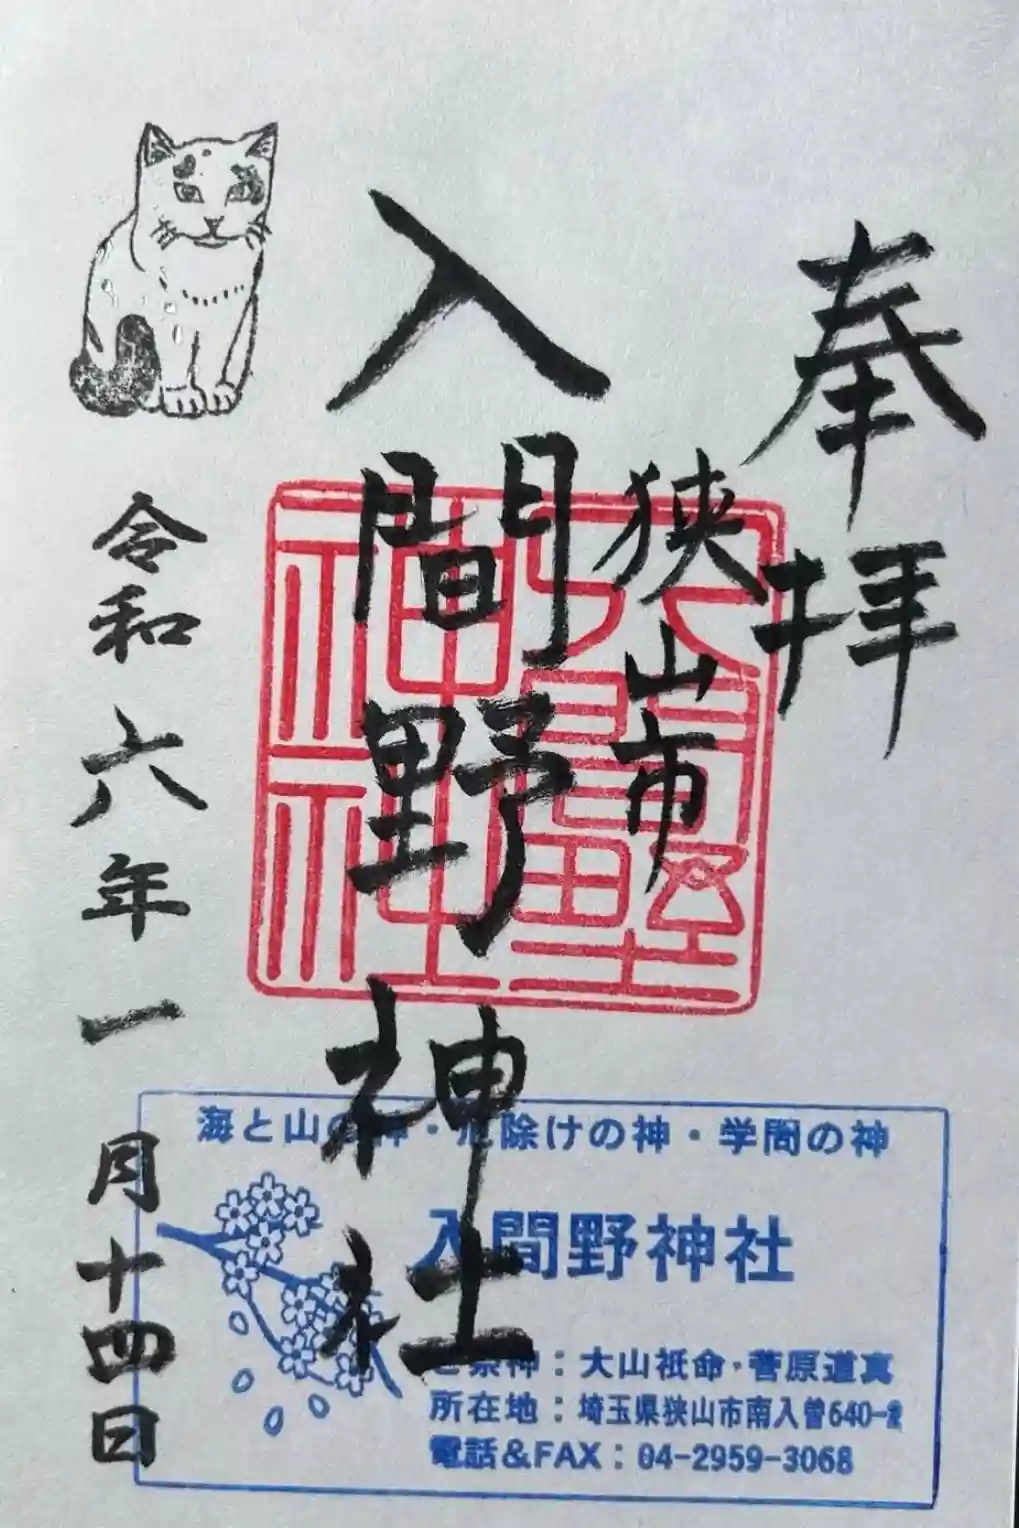 奉拝
狭山市
入間野神社
入野
神社
令和六年一月十四日
海と山の神・厄除けの神・学問の神
入間野神社
ご祭神：大山祇命・菅原道真
所在地：埼玉県狭山市南入曽640-2
電話＆FAX：04-2959-3068